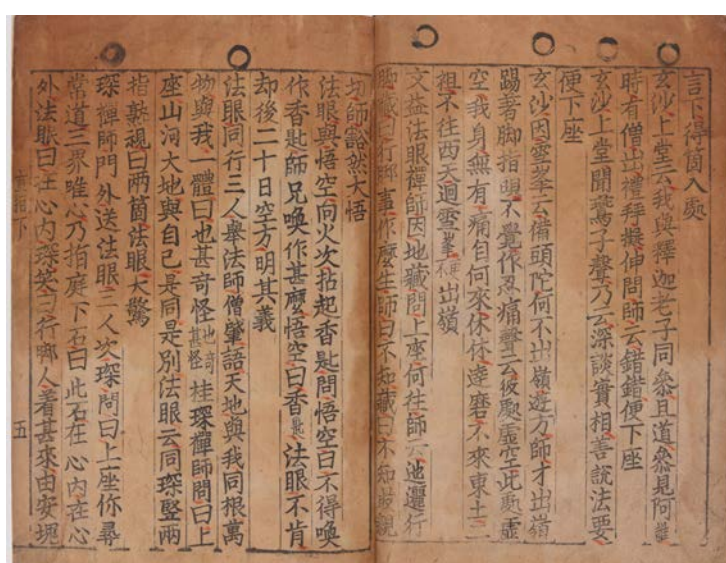 言下得箇入處
玄沙上堂云我與釋迦老子同叅且道叅見阿誰
時有僧出禮拜擬伸問師云錯錯便下座
玄沙上堂聞鷰子聲乃云深談實相善說法要
便下座
玄沙因雪峯云備頭陀何不出嶺遊方師才出嶺
踢著脚指頭不覺作忍痛聲云彼處虛空此處虛
空我身無有痛自何來休休達磨不來東土二
祖不往西天迴雪峯 出嶺
文益法眼禪師因地藏問上座何往師云迤邐行
脚藏曰行脚事作麽生師曰不知藏曰不知最親
切師豁然大悟
法眼與悟空向火次拈起香匙問悟空曰不得喚
作香匙師兄喚作甚麽悟空曰香匙法眼不肯
却後二十日空方明其義
法眼同行三人舉法師僧肇語天地與我同根萬
物與我一體曰也甚奇怪也奇甚怪桂琛禪師問曰上
座山河大地與自己是同是別法眼云同琛竪兩
指熟視曰兩箇法眼大驚
琛禪師門外送法眼三人次琛問曰上座你尋
常道三界唯心乃指庭下石曰此石在心內在心
外法眼曰在心內琛笑曰行脚人着甚來由安塊
直指下 五